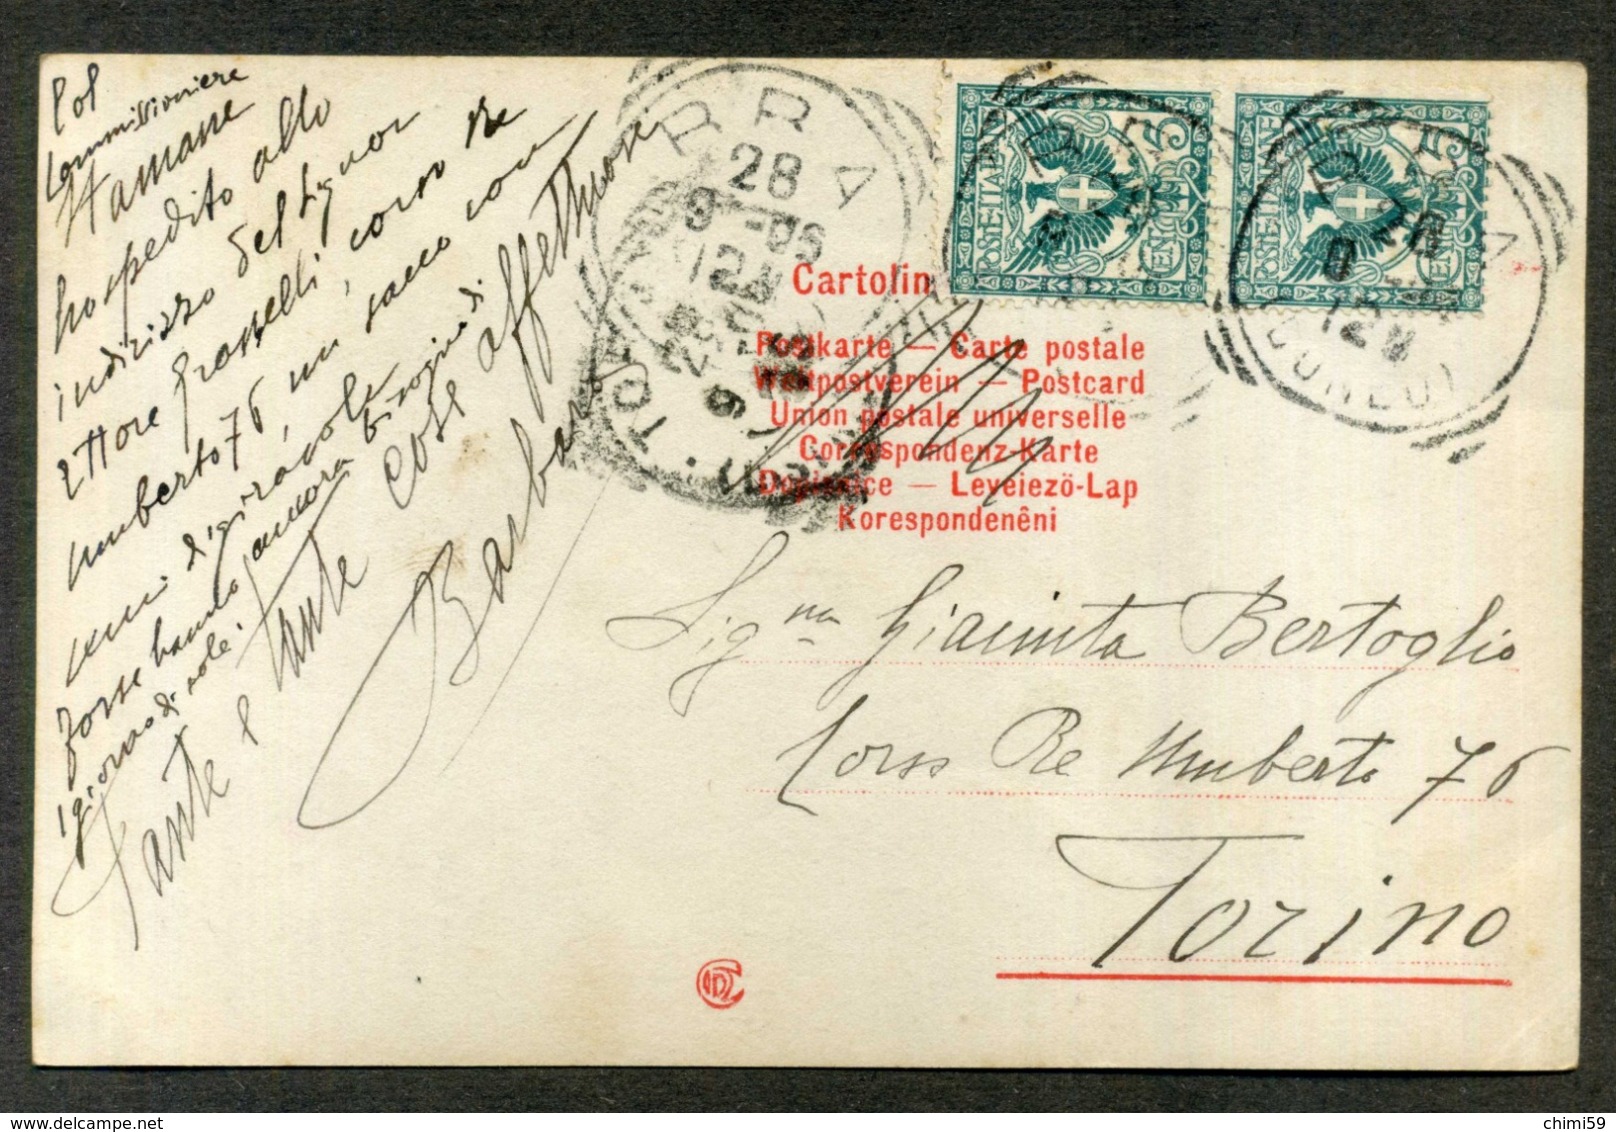 Col
Commissioniere
Hamane
spedito allo
indirizzo del Signor
Ettore Frasselli, corso Re
Umberto 76, un sacco con
semi di girasole
forse hanno ancora bisogno di
giorno di sole!
Tante e tante cose affettuose
Barbaro
BRA
28
9-05
12M
TORINO
Cartolin
Postkarte — Carte postale
Weltpostverein — Postcard
Union postale universelle
Correspondenz-Karte
Dopisnice — Leveiezö-Lap
Korespondenêni
POSTE ITALIANE
CENT 5
POSTE ITALIANE
CENT 5
BRA
(CUNEO)
Sig.na Giacinta Bertoglio
Corso Re Umberto 76
Torino
delcampe.net
chimi59